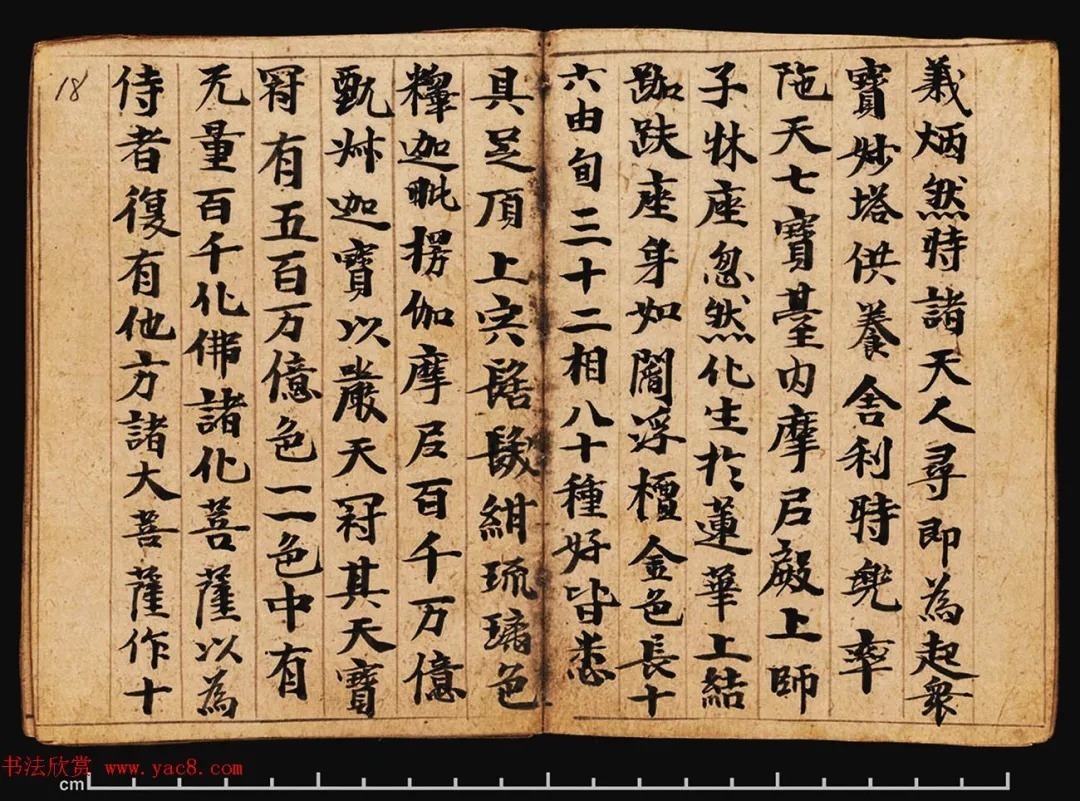 義炳然時諸天人尋即為起衆
寶妙塔供養舍利時兜率
陁天七寶臺內摩尼殿上師
子牀座忽然化生於蓮華上結
跏趺座身如閻浮檀金色長十
六由旬三十二相八十種好皆悉
具足頂上宍髻髮紺琉璃色
釋迦毗楞伽摩尼百千万億
甄叔迦寶以嚴天冠其天寶
冠有五百万億色一一色中有
无量百千化佛諸化菩薩以為
侍者復有他方諸大菩薩作十
18
书法欣赏 www.yac8.com
cm